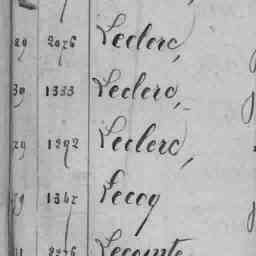 29 2976 Leclerc,
39 1333 Leclerc,
29 1292 Leclerc,
1342 Lecoq
2276 Lecointe